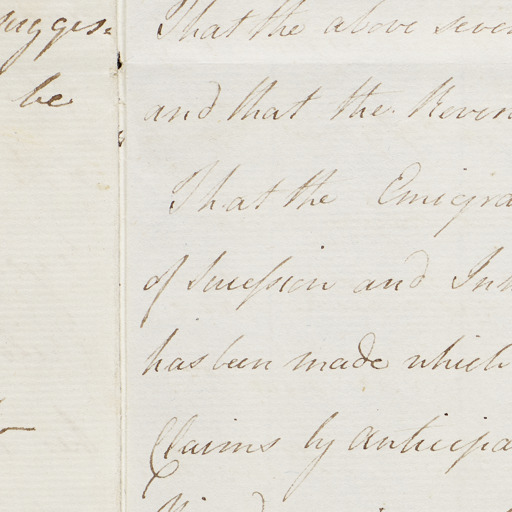 sugges=
be
That the above seven
and that the Reven
That the Emigra
of Succession and In
has been made which
Claims by anticipa